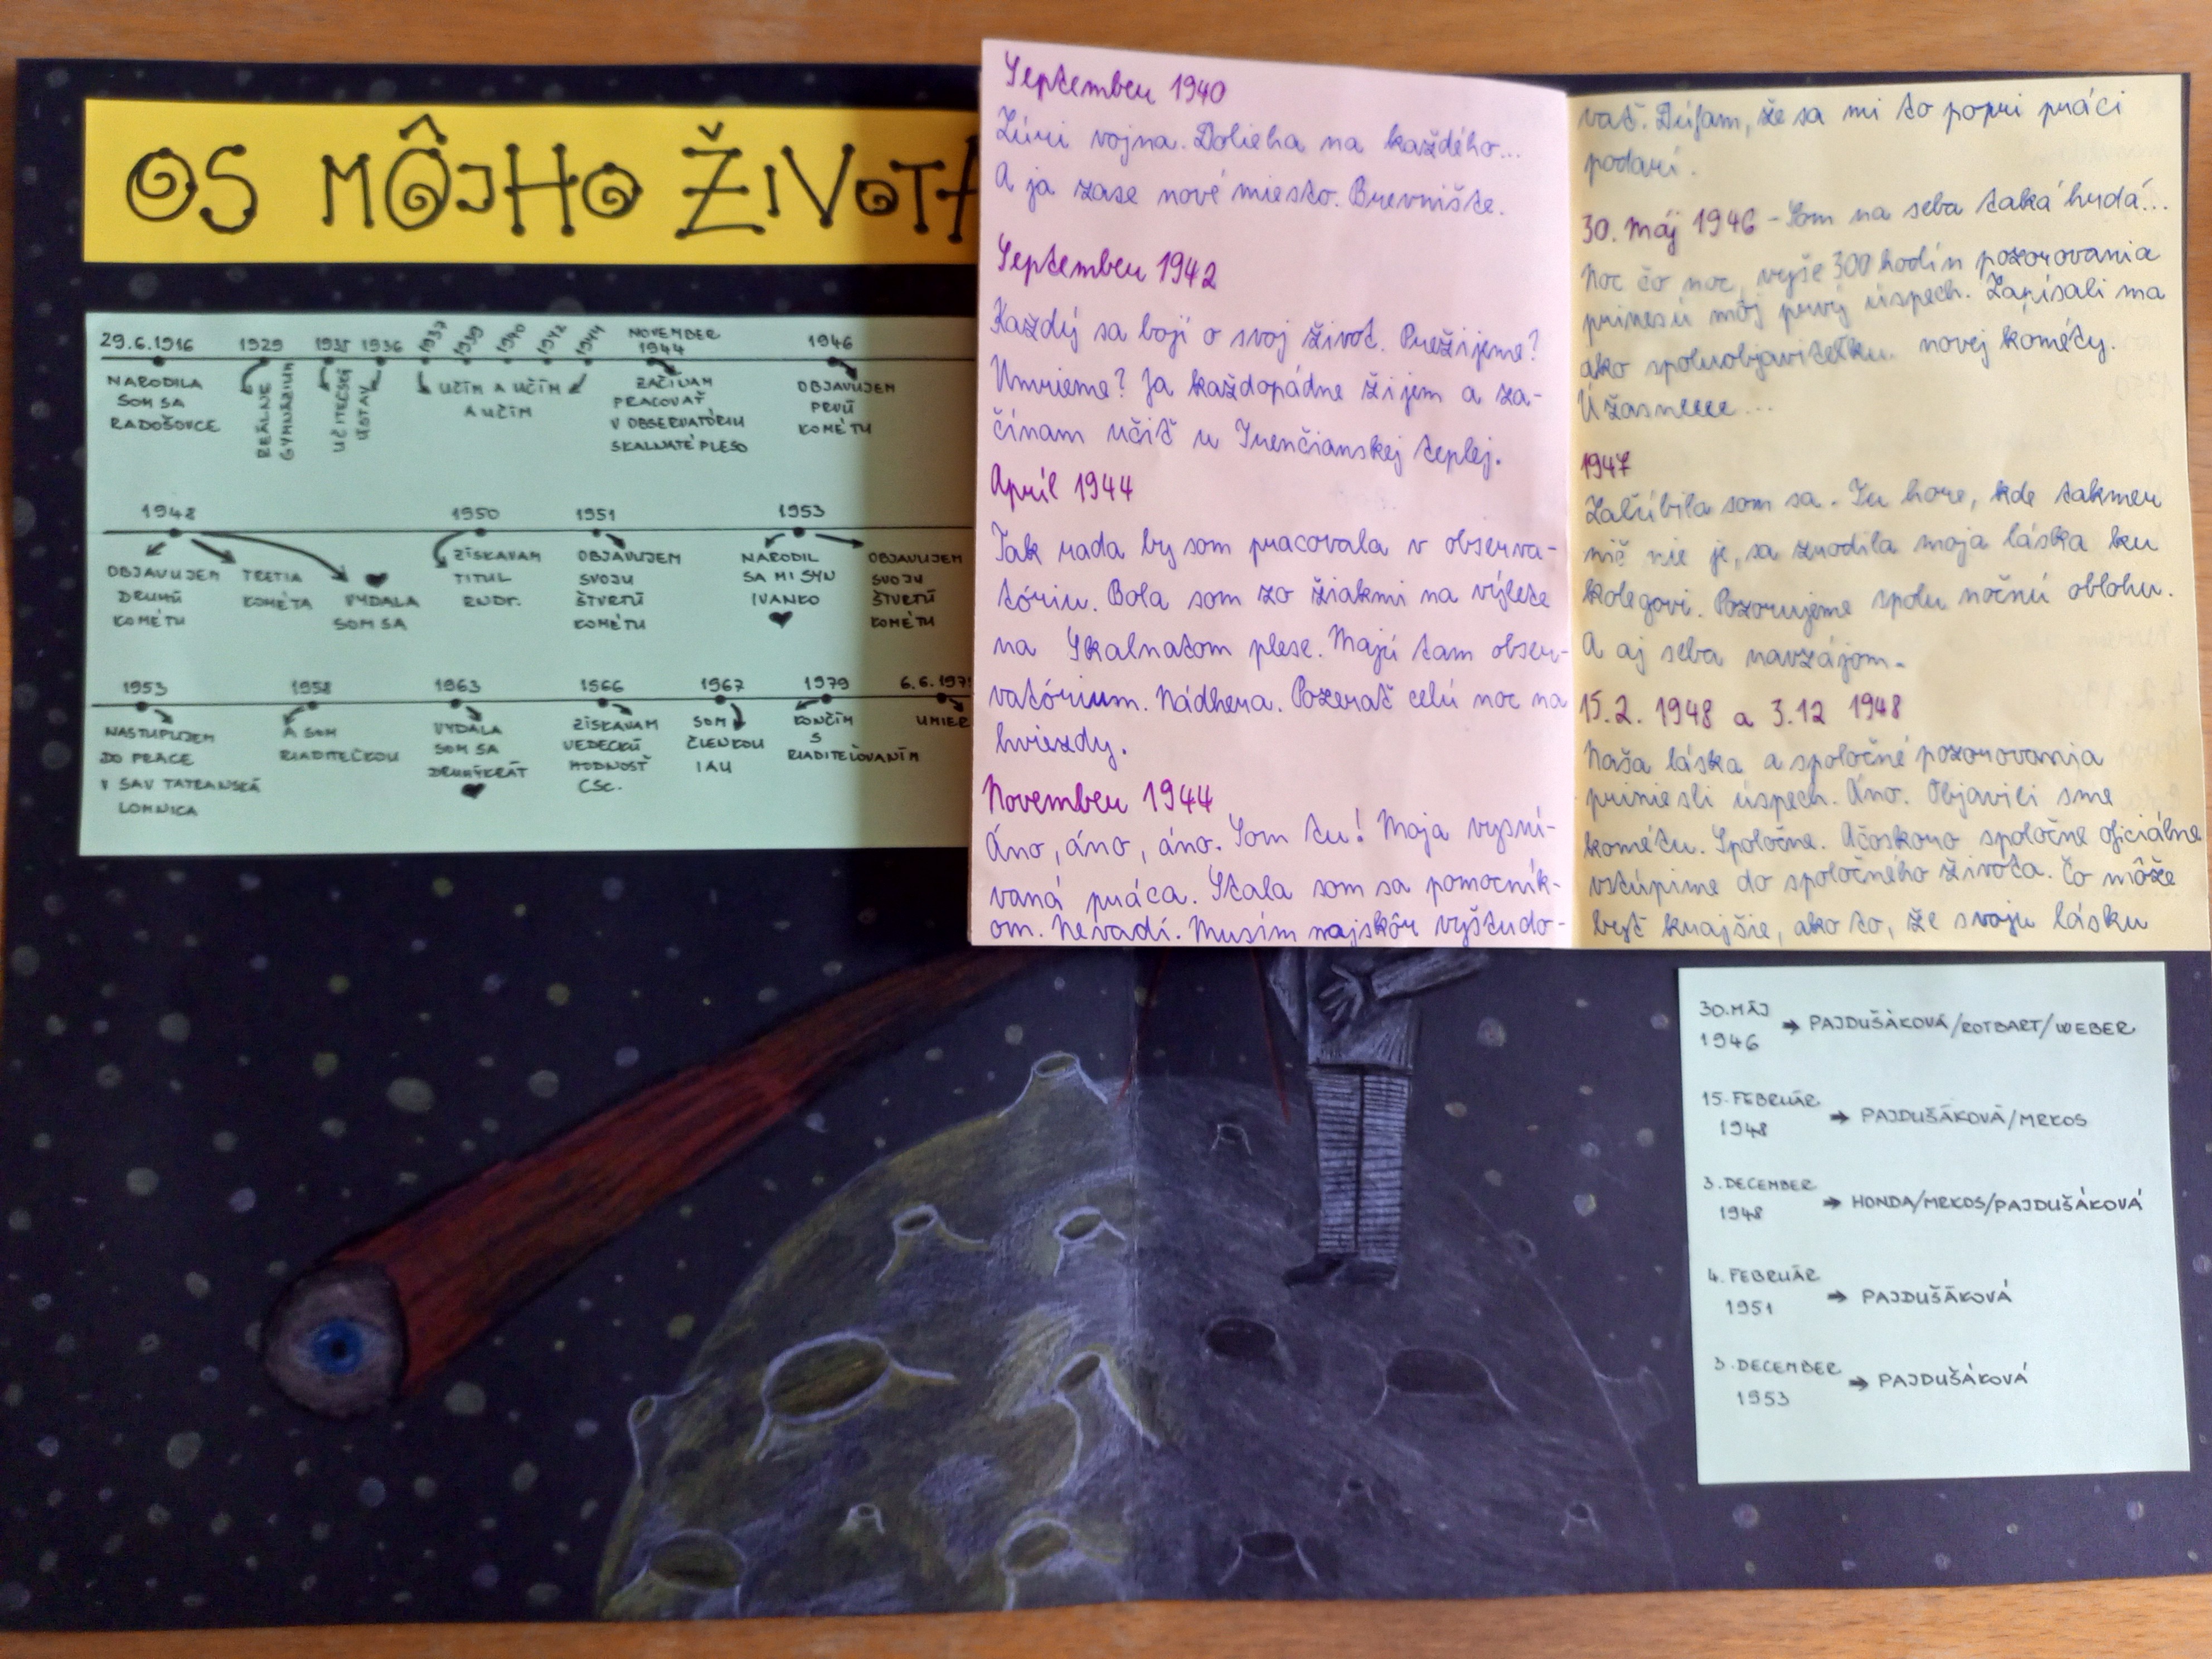 OS MÔJHO ŽIVOTA
29.6.1916
NARODILA
SOM SA
RADOŠOVCE
1929
REÁLNE
GYMNÁZIUM
1935
1936
UČITEĽSKÝ
ÚSTAV
1937
1939
1940
1942
1944
UČÍM A UČÍM
A UČÍM
NOVEMBER
1944
ZAČÍNAM
PRACOVAŤ
V OBSERVATÓRIU
SKALNATÉ PLESO
1946
OBJAVUJEM
PRVÚ
KOMÉTU
1948
OBJAVUJEM
DRUHÚ
KOMÉTU
TRETIA
KOMÉTA
VYDALA
SOM SA
1950
ZÍSKAVAM
TITUL
RNDr.
1951
OBJAVUJEM
SVOJU
ŠTVRTÚ
KOMÉTU
1953
NARODIL
SA MI SYN
IVANKO
OBJAVUJEM
SVOJU
ŠTVRTÚ
KOMÉTU
1953
NASTUPUJEM
DO PRÁCE
V SAV TATRANSKÁ
LOMNICA
1958
A SOM
RIADITEĽKOU
1963
VYDALA
SOM SA
DRUHÝKRÁT
1966
ZÍSKAVAM
VEDECKÚ
HODNOSŤ
CSc.
1967
SOM
ČLENKOU
IAU
1979
KONČÍM
S
RIADITEĽOVANÍM
6.6.197
UMIER
September 1940
Zúri vojna. Dolieha na každého...
A ja zase nové miesto. Brevnište.
September 1942
Každý sa bojí o svoj život. Prežijeme?
Umrieme? Ja každopádne žijem a za-
čínam učiť v Trenčianskej teplej.
Apríl 1944
Tak rada by som pracovala v observa-
tóriu. Bola som zo žiakmi na výlete
na Skalnatom plese. Majú tam obser-
vatórium. Nádhera. Pozerať celú noc na
hviezdy.
November 1944
Áno, áno, áno. Som tu! Moja vysní-
vaná práca. Stala som sa pomocník-
om. Nevadí. Musím najskôr vyštudo-
vať. Dúfam, že sa mi to popri práci
podarí.
30. máj 1946 - Som na seba taká hrdá...
Noc čo noc, vyše 300 hodín pozorovania
prinesú môj prvý úspech. Zapísali ma
ako spoluobjaviteľku novej kométy.
Úžasneeee...
1947
Zaľúbila som sa. Tu hore, kde takmer
nič nie je, sa zrodila moja láska ku
kolegovi. Pozorujeme spolu nočnú oblohu.
A aj seba navzájom.
15.2. 1948 a 3.12 1948
Naša láska a spoločné pozorovania
priniesli úspech. Áno. Objavili sme
kométu. Spoločne. Ačoskoro spoločne oficiálne
vstúpime do spoločného života. Čo môže
byť krajšie, ako to, že svoju lásku
30. MÁJ
1946 → PAJDUŠÁKOVÁ/ROTBART/WEBER
15. FEBRUÁR
1948 → PAJDUŠÁKOVÁ/MRKOS
3. DECEMBER
1948 → HONDA/MRKOS/PAJDUŠÁKOVÁ
4. FEBRUÁR
1951 → PAJDUŠÁKOVÁ
3. DECEMBER
1953 → PAJDUŠÁKOVÁ